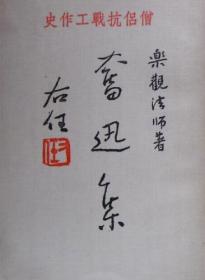 僧侶抗戰工作史
樂觀法師著
奮迅集
右任